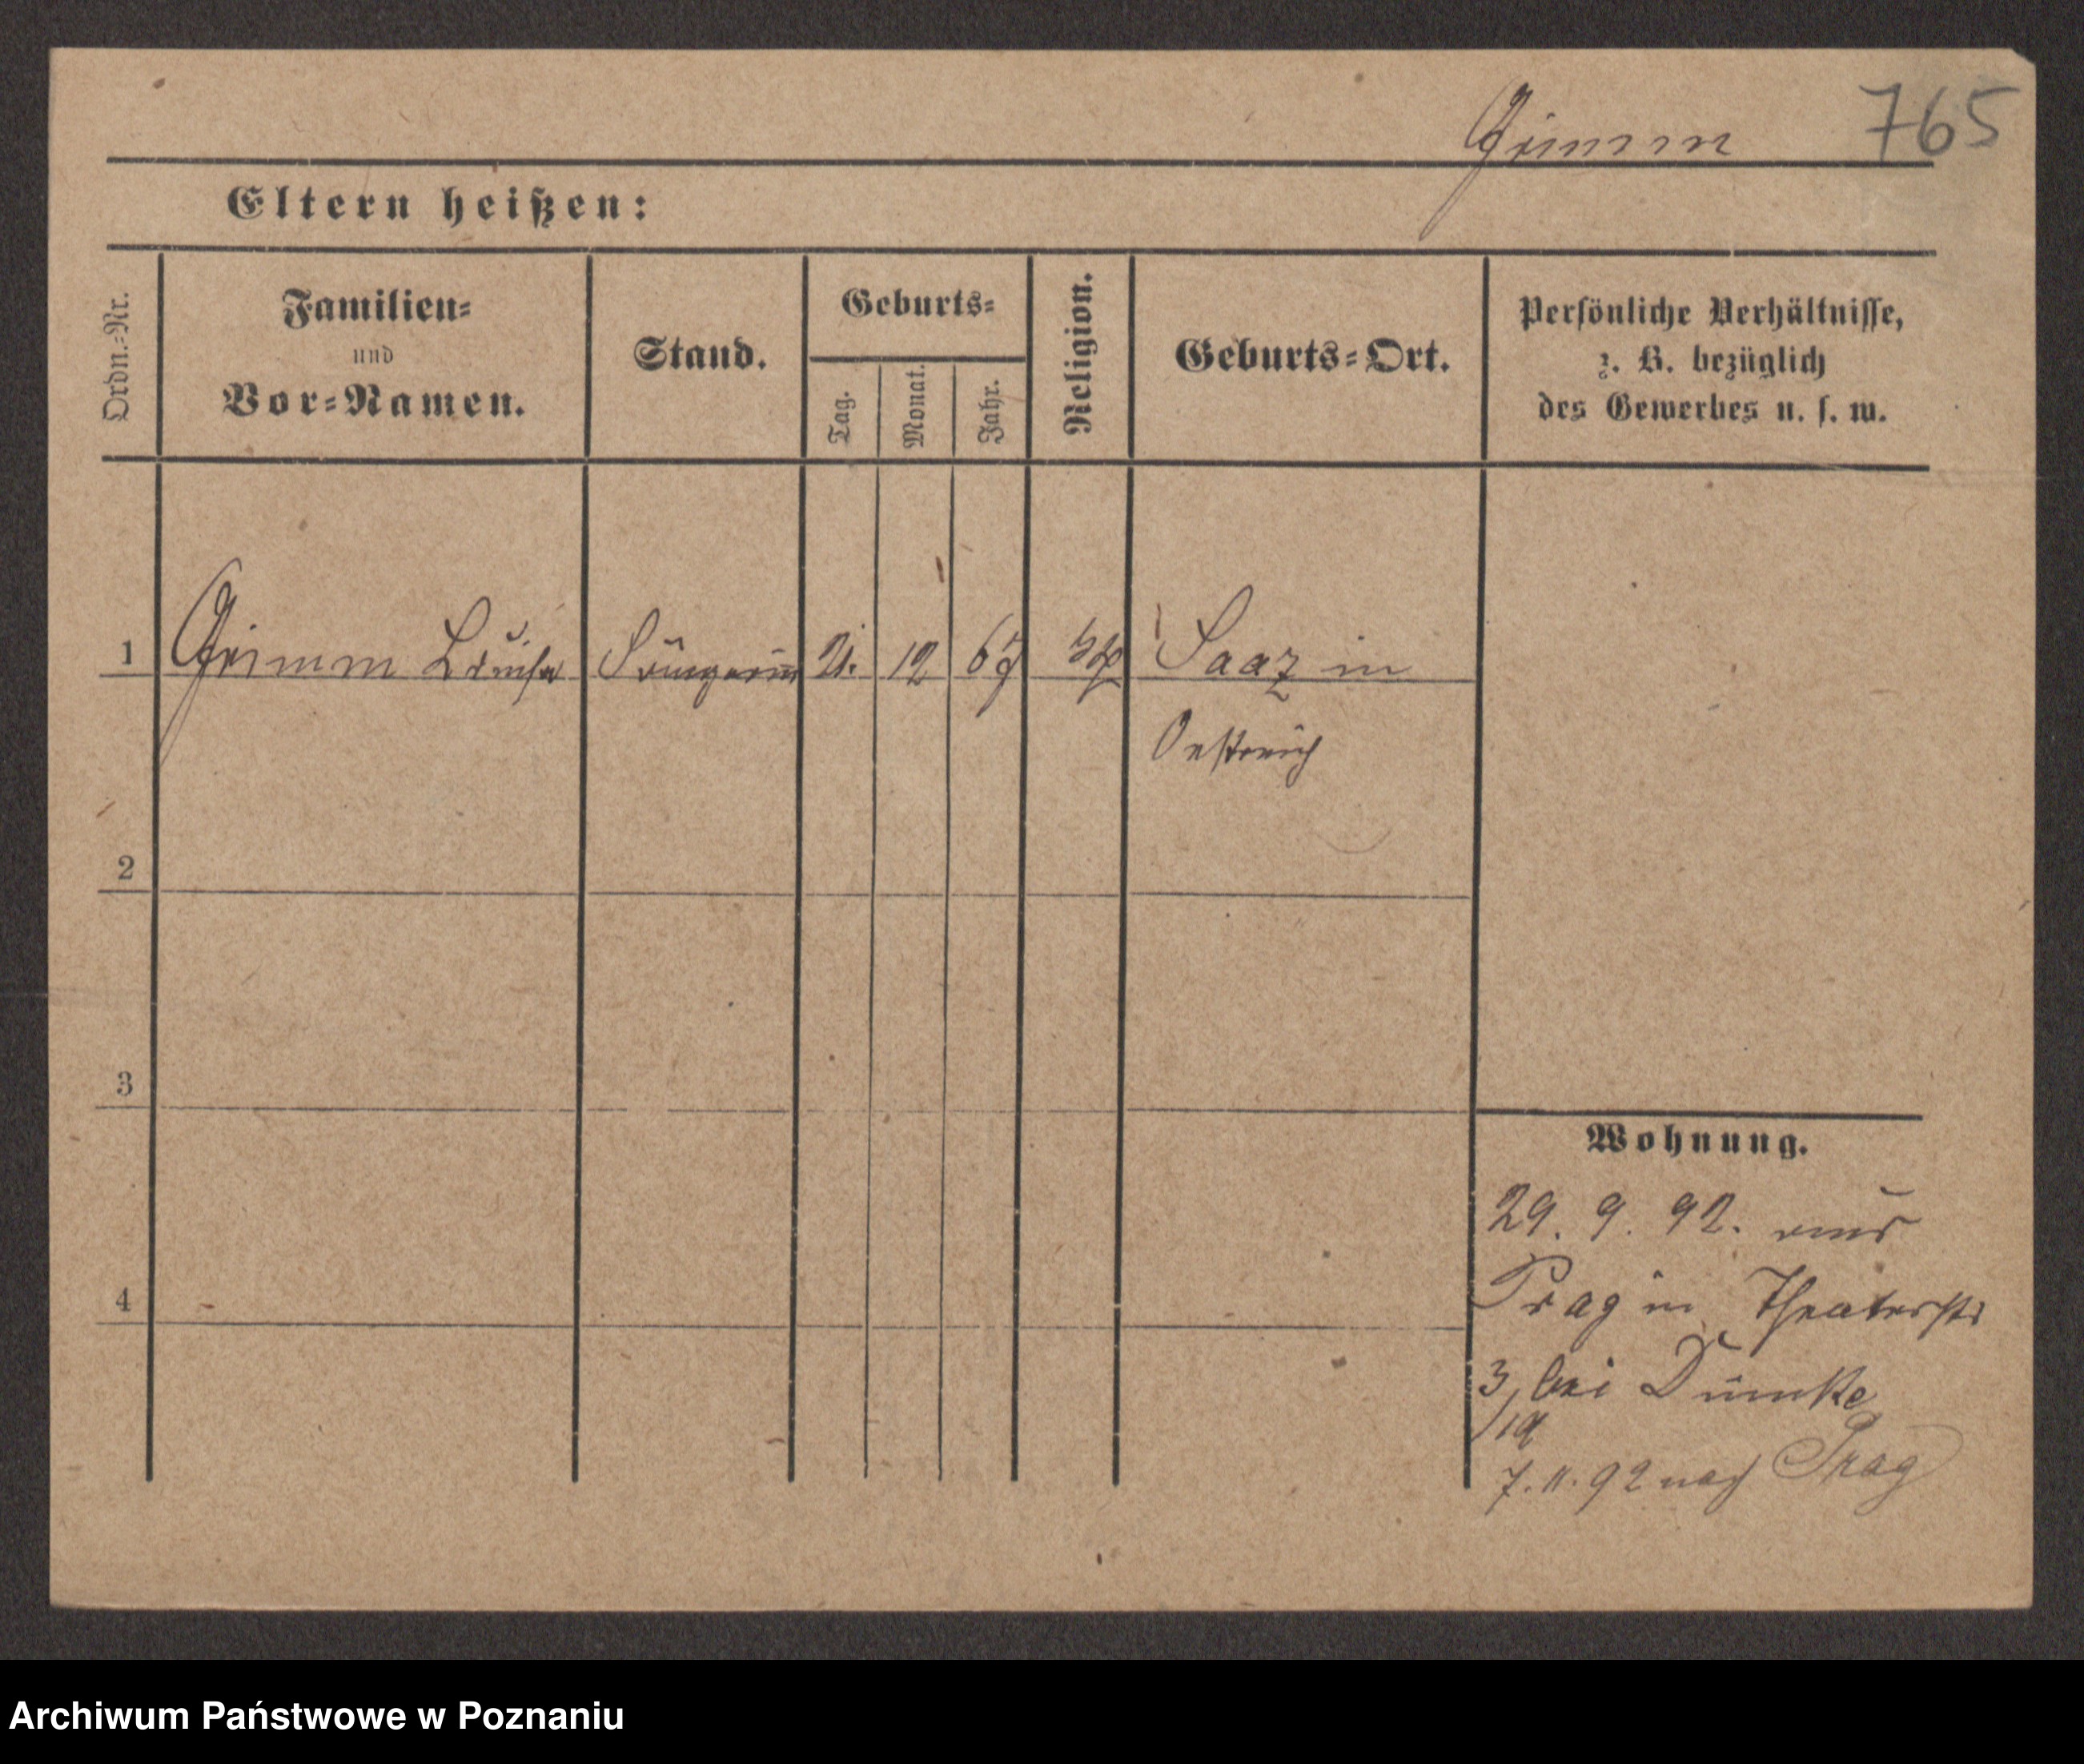 Grimm 765
Eltern heißen:
Ordn.-Nr. Familien- und Vor-Namen. Stand. Geburts- Tag. Monat. Jahr. Religion. Geburts-Ort. Persönliche Verhältnisse, z. B. bezüglich des Gewerbes u. s. w.
1 Grimm Louise Sängerin 21. 12 67 Saaz in
Oestreich
2
3
4
Wohnung.
29. 9. 92. aus
Prag in Theaterstr
3, bei Dümke
7. 11. 92 nach Prag
Archiwum Państwowe w Poznaniu